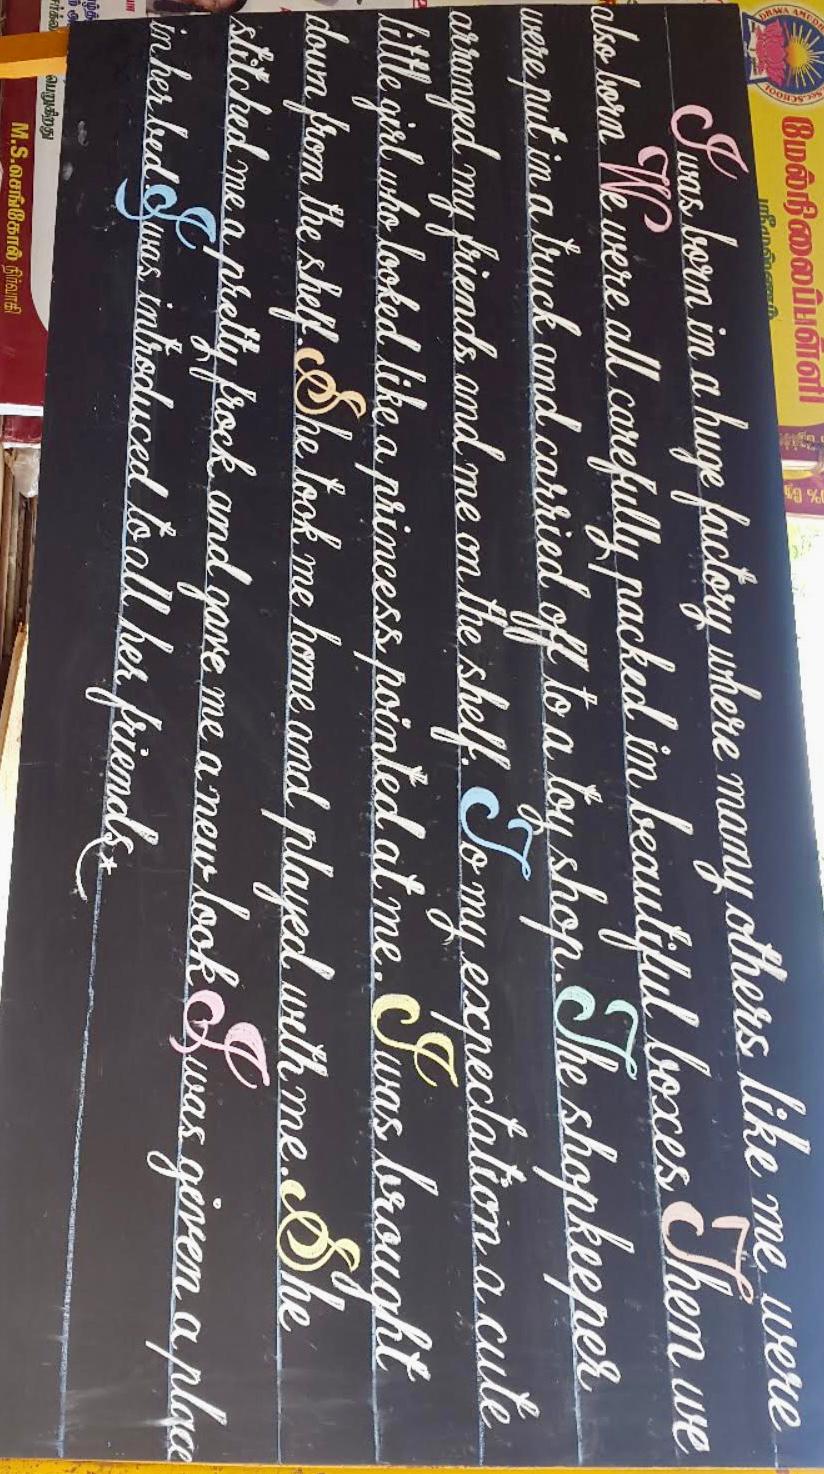 I was born in a huge factory where many others like me were
also born We were all carefully packed in beautiful boxes Then we
were put in a truck and carried off to a toy shop. The shopkeeper
arranged my friends and me on the shelf. To my expectation a cute
little girl who looked like a princess pointed at me. I was brought
down from the shelf. She took me home and played with me. She
stitched me a pretty frock and gave me a new look I was given a place
in her bed. I was introduced to all her friends
மேல்நிலைப்பள்ளி
M.S.செங்கோல் நிர்வாகி